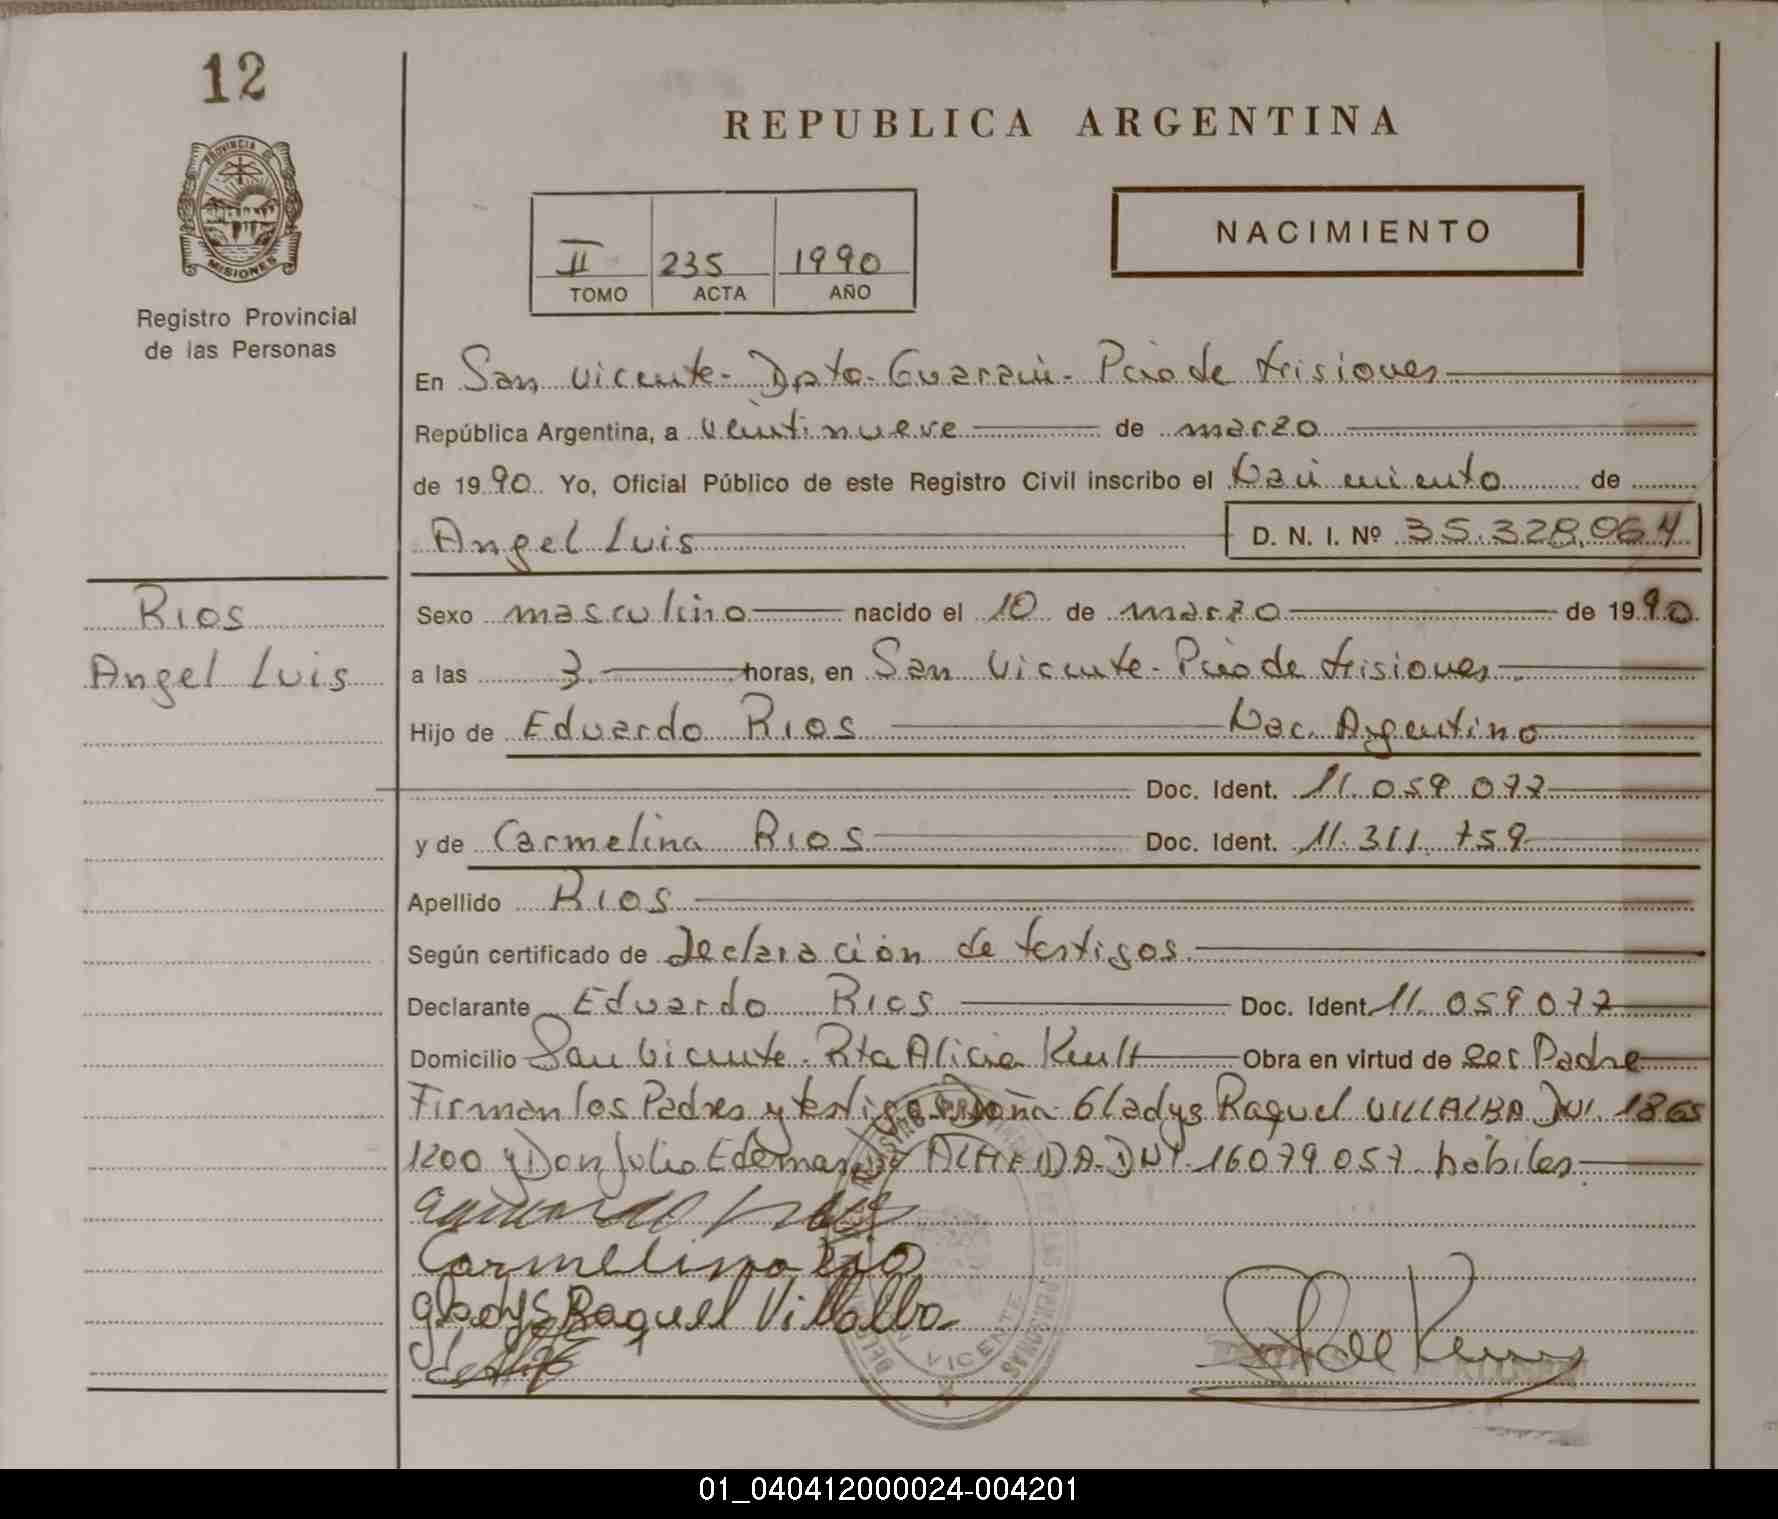 12
REPUBLICA ARGENTINA
PROVINCIA DE
MISIONES
Registro Provincial
de las Personas
II 235 1990
TOMO ACTA AÑO
NACIMIENTO
En San Vicente - Dpto. Guaraní - Pcia de Misiones
República Argentina, a veintinueve de marzo
de 1990. Yo, Oficial Público de este Registro Civil inscribo el Nacimiento de
Angel Luis D. N. I. Nº 35.328.064
RIOS
Angel Luis
Sexo masculino nacido el 10 de marzo de 1990
a las 3 horas, en San Vicente - Pcia de Misiones
Hijo de Eduardo RIOS Nac. Argentino
Doc. Ident. 11.059.077
y de Carmelina RIOS Doc. Ident. 11.311.759
Apellido RIOS
Según certificado de Declaración de testigos
Declarante Eduardo RIOS Doc. Ident. 11.059.077
Domicilio San Vicente. Pta Alicia Obra en virtud de ser Padre
Firman los Padres y testigos Doña Gladys Raquel VILLALBA DNI. 1865
1200 y Don Julio ALMEIDA - DNI - 16079057. hábiles
Carmelina
Gladys Raquel Villalba
VICENTE
01_040412000024-004201